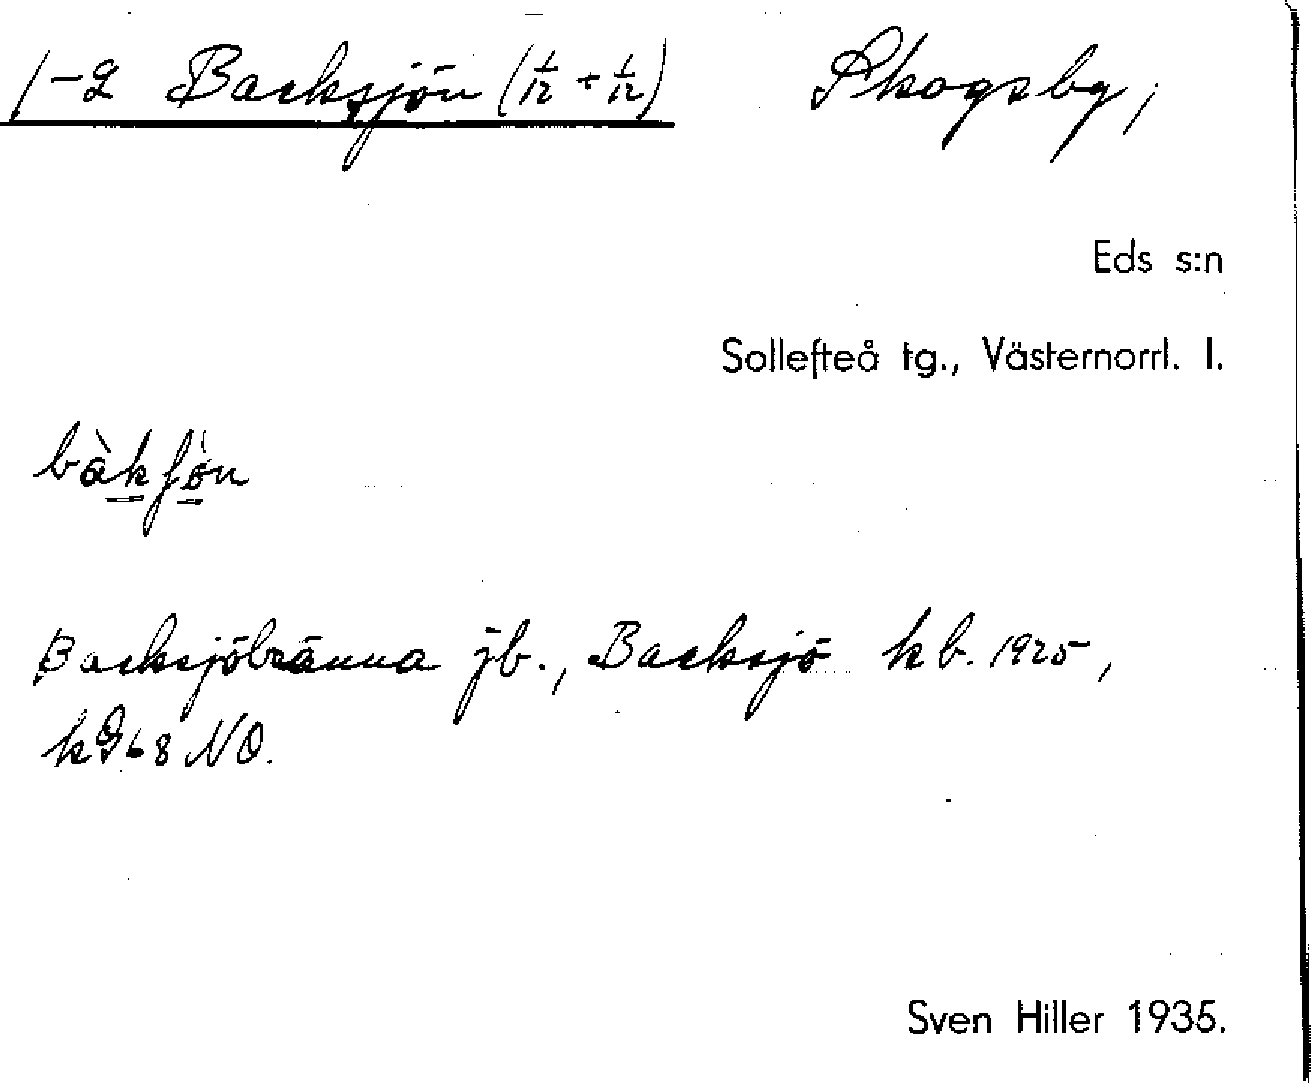 1-2 Backsjön (1/12 + 1/12) Skogsby,
Eds s:n
Sollefteå tg., Västernorrl. l.
bàkʃö̀n
Backsjöbränna jb., Backsjö kb. 1925,
k968 NO.
Sven Hiller 1935.